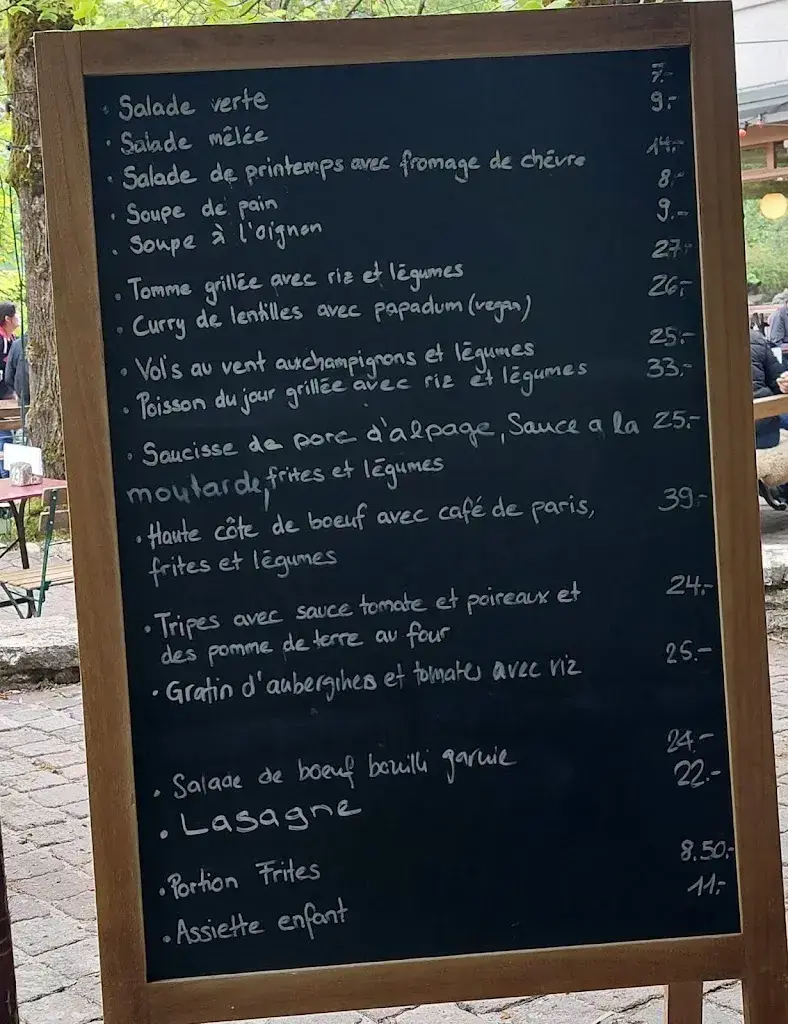 · Salade verte 7.-
· Salade mêlée 9.-
· Salade de printemps avec fromage de chêvre 14.-
· Soupe de pain 8.-
· Soupe à l'oignon 9.-
· Tomme grillée avec riz et légumes 27.-
· Curry de lentilles avec papadum (vegan) 26.-
· Vol's au vent aux champignons et légumes 25.-
· Poisson du jour grillée avec riz et légumes 33.-
· Saucisse de porc d'alpage, Sauce a la 25.-
moutarde, frites et légumes
· Haute côte de boeuf avec café de paris, 39.-
frites et légumes
· Tripes avec sauce tomate et poireaux et 24.-
des pomme de terre au four
· Gratin d'aubergines et tomates avec riz 25.-
· Salade de boeuf bouilli garnie 24.-
· Lasagne 22.-
· Portion Frites 8.50.-
· Assiette enfant 11.-